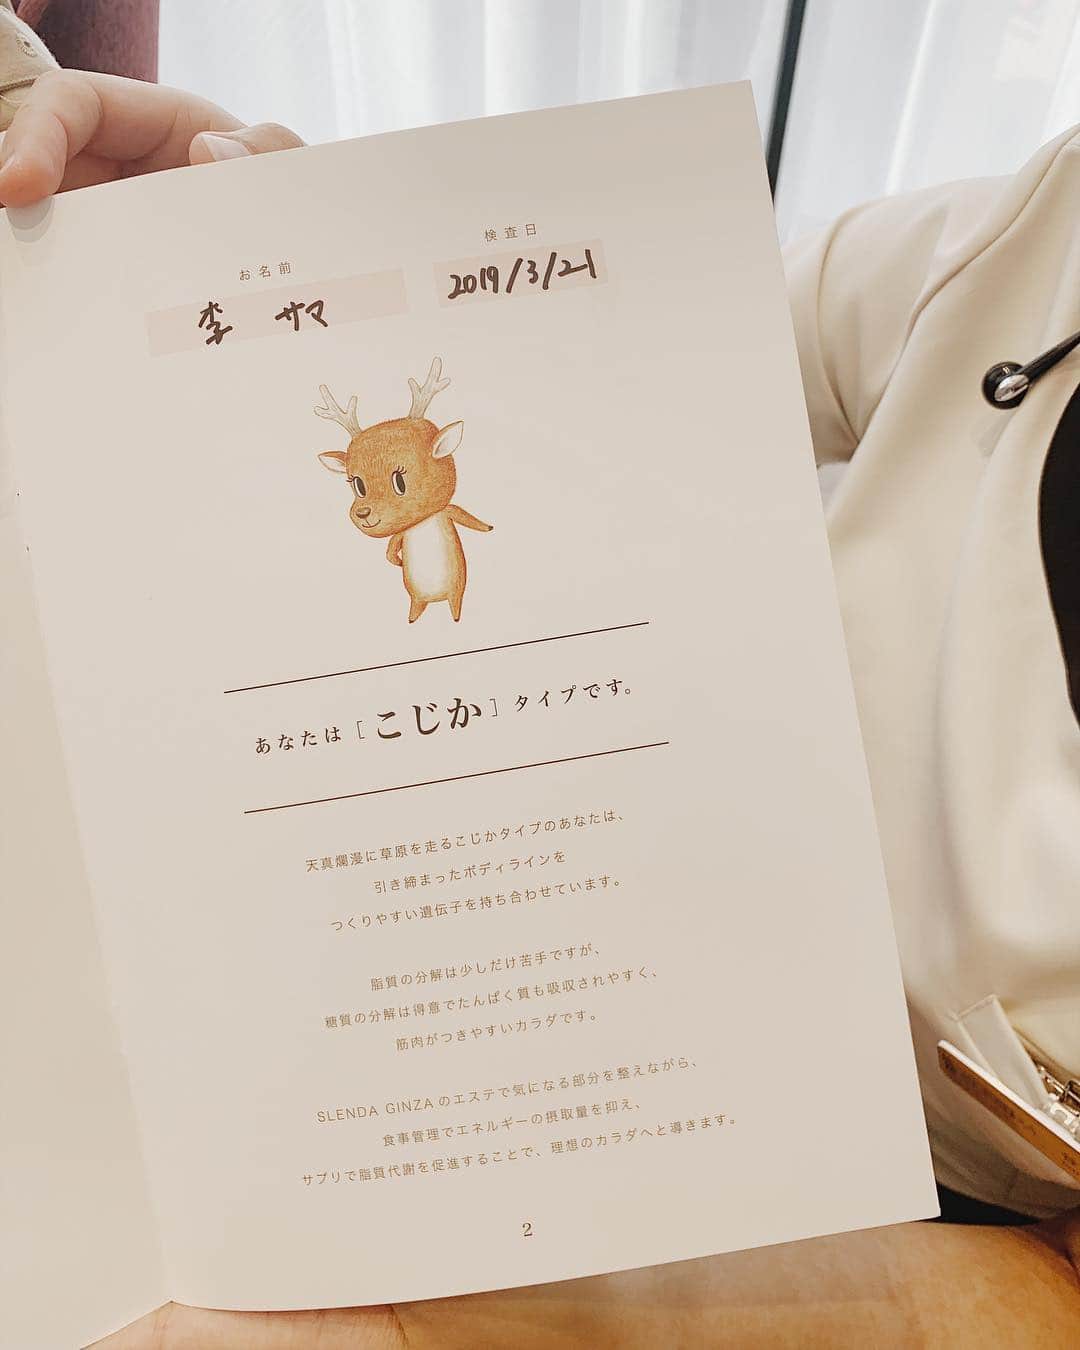 お名前
検査日
李 サマ
2019/3/21
あなたは［こじか］タイプです。
天真爛漫に草原を走るこじかタイプのあなたは、
引き締まったボディラインを
つくりやすい遺伝子を持ち合わせています。
脂質の分解は少しだけ苦手ですが、
糖質の分解は得意でたんぱく質も吸収されやすく、
筋肉がつきやすいカラダです。
SLENDA GINZAのエステで気になる部分を整えながら、
食事管理でエネルギーの摂取量を抑え、
サプリで脂質代謝を促進することで、理想のカラダへと導きます。
2